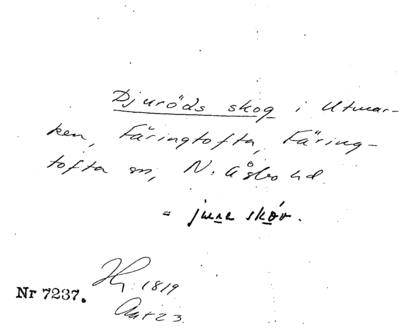 Djuröds skog i Utmar-
ken, Färingtofta, Färing-
tofta sn, N. Åsbo hd.
= skóv.
Nr 7237.
1819
23